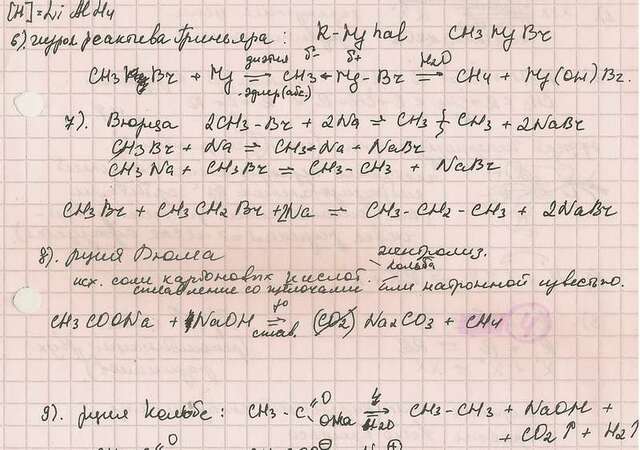 [H] = LiAlH4
6). гидрол реактива Гриньяра: R-Mg hal CH3MgBr
диэтил δ- δ+ H2O
CH3Br + Mg = CH3 ← Mg-Br = CH4 + Mg(OH)Br.
эфир (абс.)
7). Вюрца 2CH3-Br + 2Na = CH3 { CH3 + 2NaBr
CH3Br + Na = CH3Na + NaBr
CH3Na + CH3Br = CH3-CH3 + NaBr
CH3Br + CH3CH2Br + 2Na = CH3-CH2-CH3 + 2NaBr
8). р-ция Дюма электролиз.
Кольба
исх. соли карбоновых кислот.
сплавление со щелочами или натронной известью.
t°
CH3COONa + NaOH = (CO2) Na2CO3 + CH4
сплав.
9). р-ция Кольбе: CH3-C =O ONa H2O CH3-CH3 + NaOH +
+ CO2↑ + H2↑